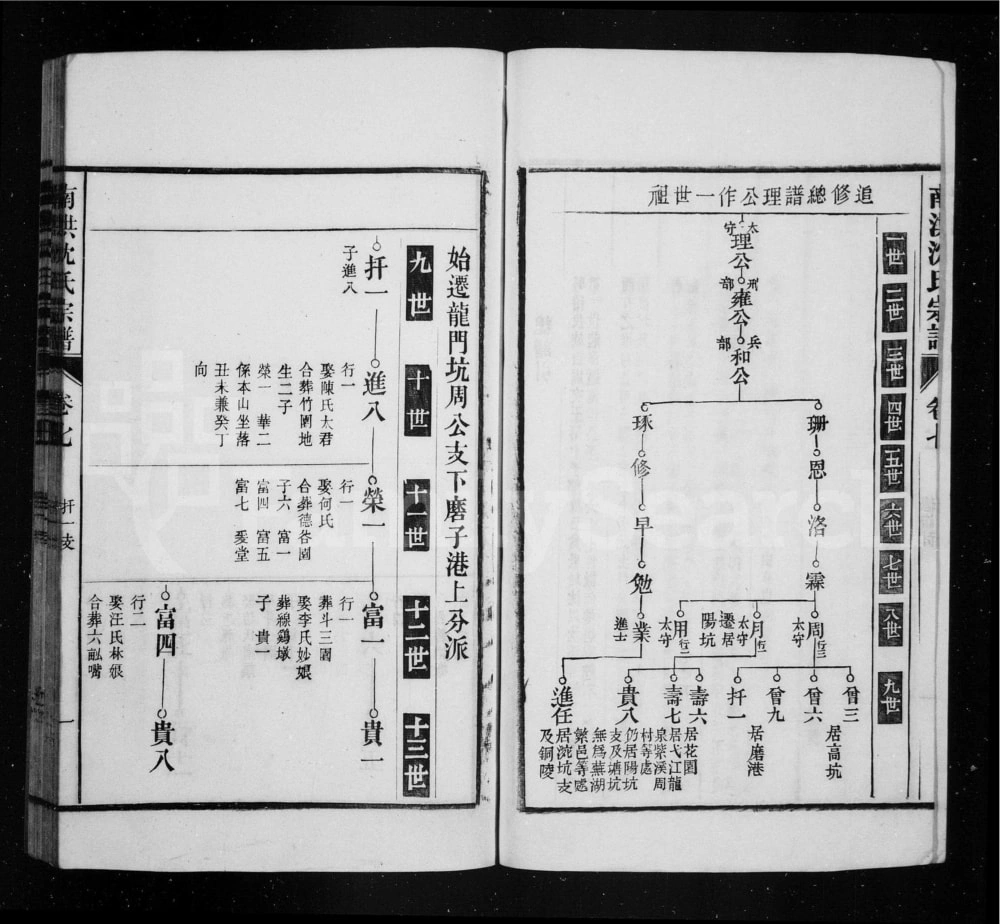 南洪沈氏宗譜
卷七
追修總譜理公作一世祖
一世
二世
三世
四世
五世
六世
七世
八世
九世
太守
理公
刑部
雍公
兵部
和公
珊
恩
洛
霖
周
行三
太守
月
行二
太守
遷居
陽坑
用
行一
太守
琢
修
早
勉
業
進士
曾三
居高坑
曾六
曾九
居磨港
扦一
壽六
居花園
壽七
居弋江龍
泉紫溪周
村等處
貴八
仍居陽坑
支及塘坑
無為蕪湖
繁邑等處
進任
居浣坑支
及銅陵
始遷龍門坑周公支下磨子港上分派
九世
十世
十一世
十二世
十三世
扦一
子進八
進八
行一
娶陳氏太君
合葬竹園地
生二子
榮一 華二
係本山坐落
丑未兼癸丁
向
榮一
行一
娶何氏
合葬德咎園
子六 富一
富四 富五
富七 爰堂
富一
行一
葬斗三園
娶李氏妙娘
葬線鷄墩
子 貴一
貴一
富四
行二
娶汪氏林娘
合葬六畝嘴
貴八
南洪沈氏宗譜
卷七
扦一支
一